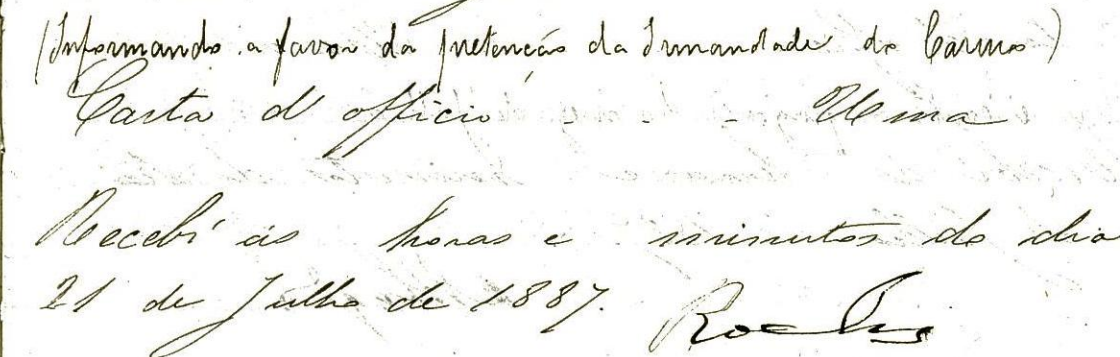 (Informando a favor da pretenção da Irmandade do Carmo)
Carta d'officio - - Uma
Recebi ás horas e minutos do dia
21 de Julho de 1887.